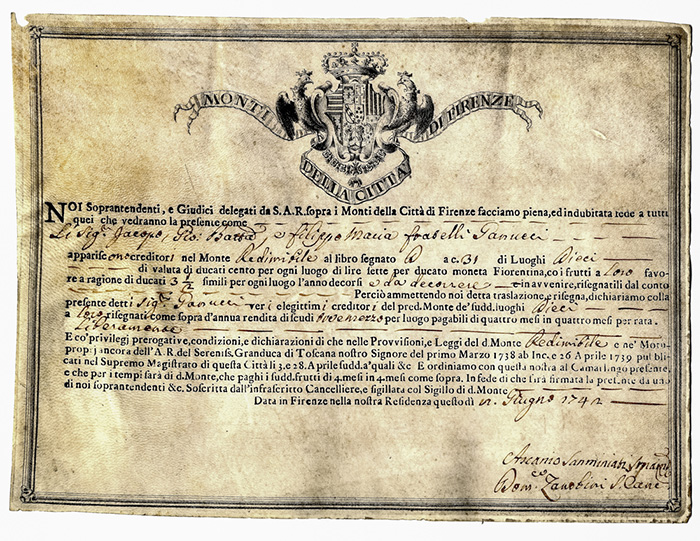 MONTI
DI FIRENZE
DELLA CITTÀ
NOI Soprantendenti, e Giudici delegati da S. A. R. sopra i Monti della Città di Firenze facciamo piena, ed indubitata fede a tutti
quei che vedranno la presente come
Li Sig.ri Jacopo, Gio: Batta e Filippo Maria fratelli Ganucci
apparisc ono creditori nel Monte Redimibile al libro segnato D a c. 31 di Luoghi Dieci
di valuta di ducati cento per ogni luogo di lire sette per ducato moneta Fiorentina, co i frutti a Loro favo-
re a ragione di ducati 3 1/2 simili per ogni luogo l'anno decorsi e da decorrere e in avvenire, risegnatili dal conto
Perciò ammettendo noi detta traslazione, e risegna, dichiariamo colla
presente detti Sig.ri Ganucci veri e legittimi creditori del pred. Monte de' sudd. luoghi Dieci
a Loro risegnati come sopra d'annua rendita di scudi tre e mezzo per luogo pagabili di quattro mesi in quattro mesi per rata.
Liberamente
E co' privilegi prerogative, condizioni, e dichiarazioni di che nelle Provvisioni, e Leggi del d. Monte Redimibile e ne' Moto-
proprj ancora dell'A. R. del Sereniss. Granduca di Toscana nostro Signore del primo Marzo 1738 ab Inc. e 26 Aprile 1739 pubbli-
cati nel Supremo Magistrato di questa Città li 3, e 28. Aprile sudd. a' quali &c. E ordiniamo con questa nostra al Camarlingo presente,
e che per i tempi sarà di d. Monte, che paghi i sudd. frutti di 4. mesi in 4. mesi come sopra. In fede di che sarà firmata la present. da uno
di noi soprantendenti &c. Soscritta dall'infrascritto Cancelliere, e sigillata col Sigillo di d. Monte
Data in Firenze nella nostra Residenza questo dì Giugno 1742
Ascanio Sanminiati
Dom.co Zanobini